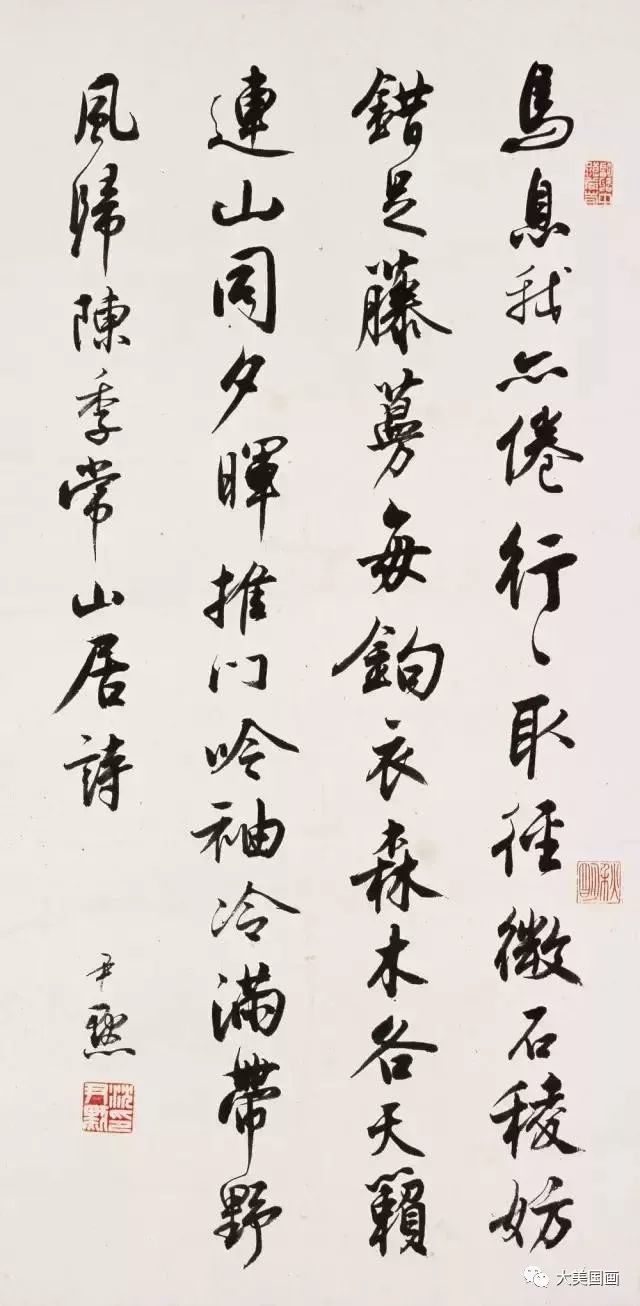 馬息我亦倦行〻取徑微石稜妨
錯足藤蔓每鉤衣森木各天籟
連山同夕暉推門吟袖冷滿帶野
風歸陳季常山居詩
尹默
沈尹默印
秋明
大美国画